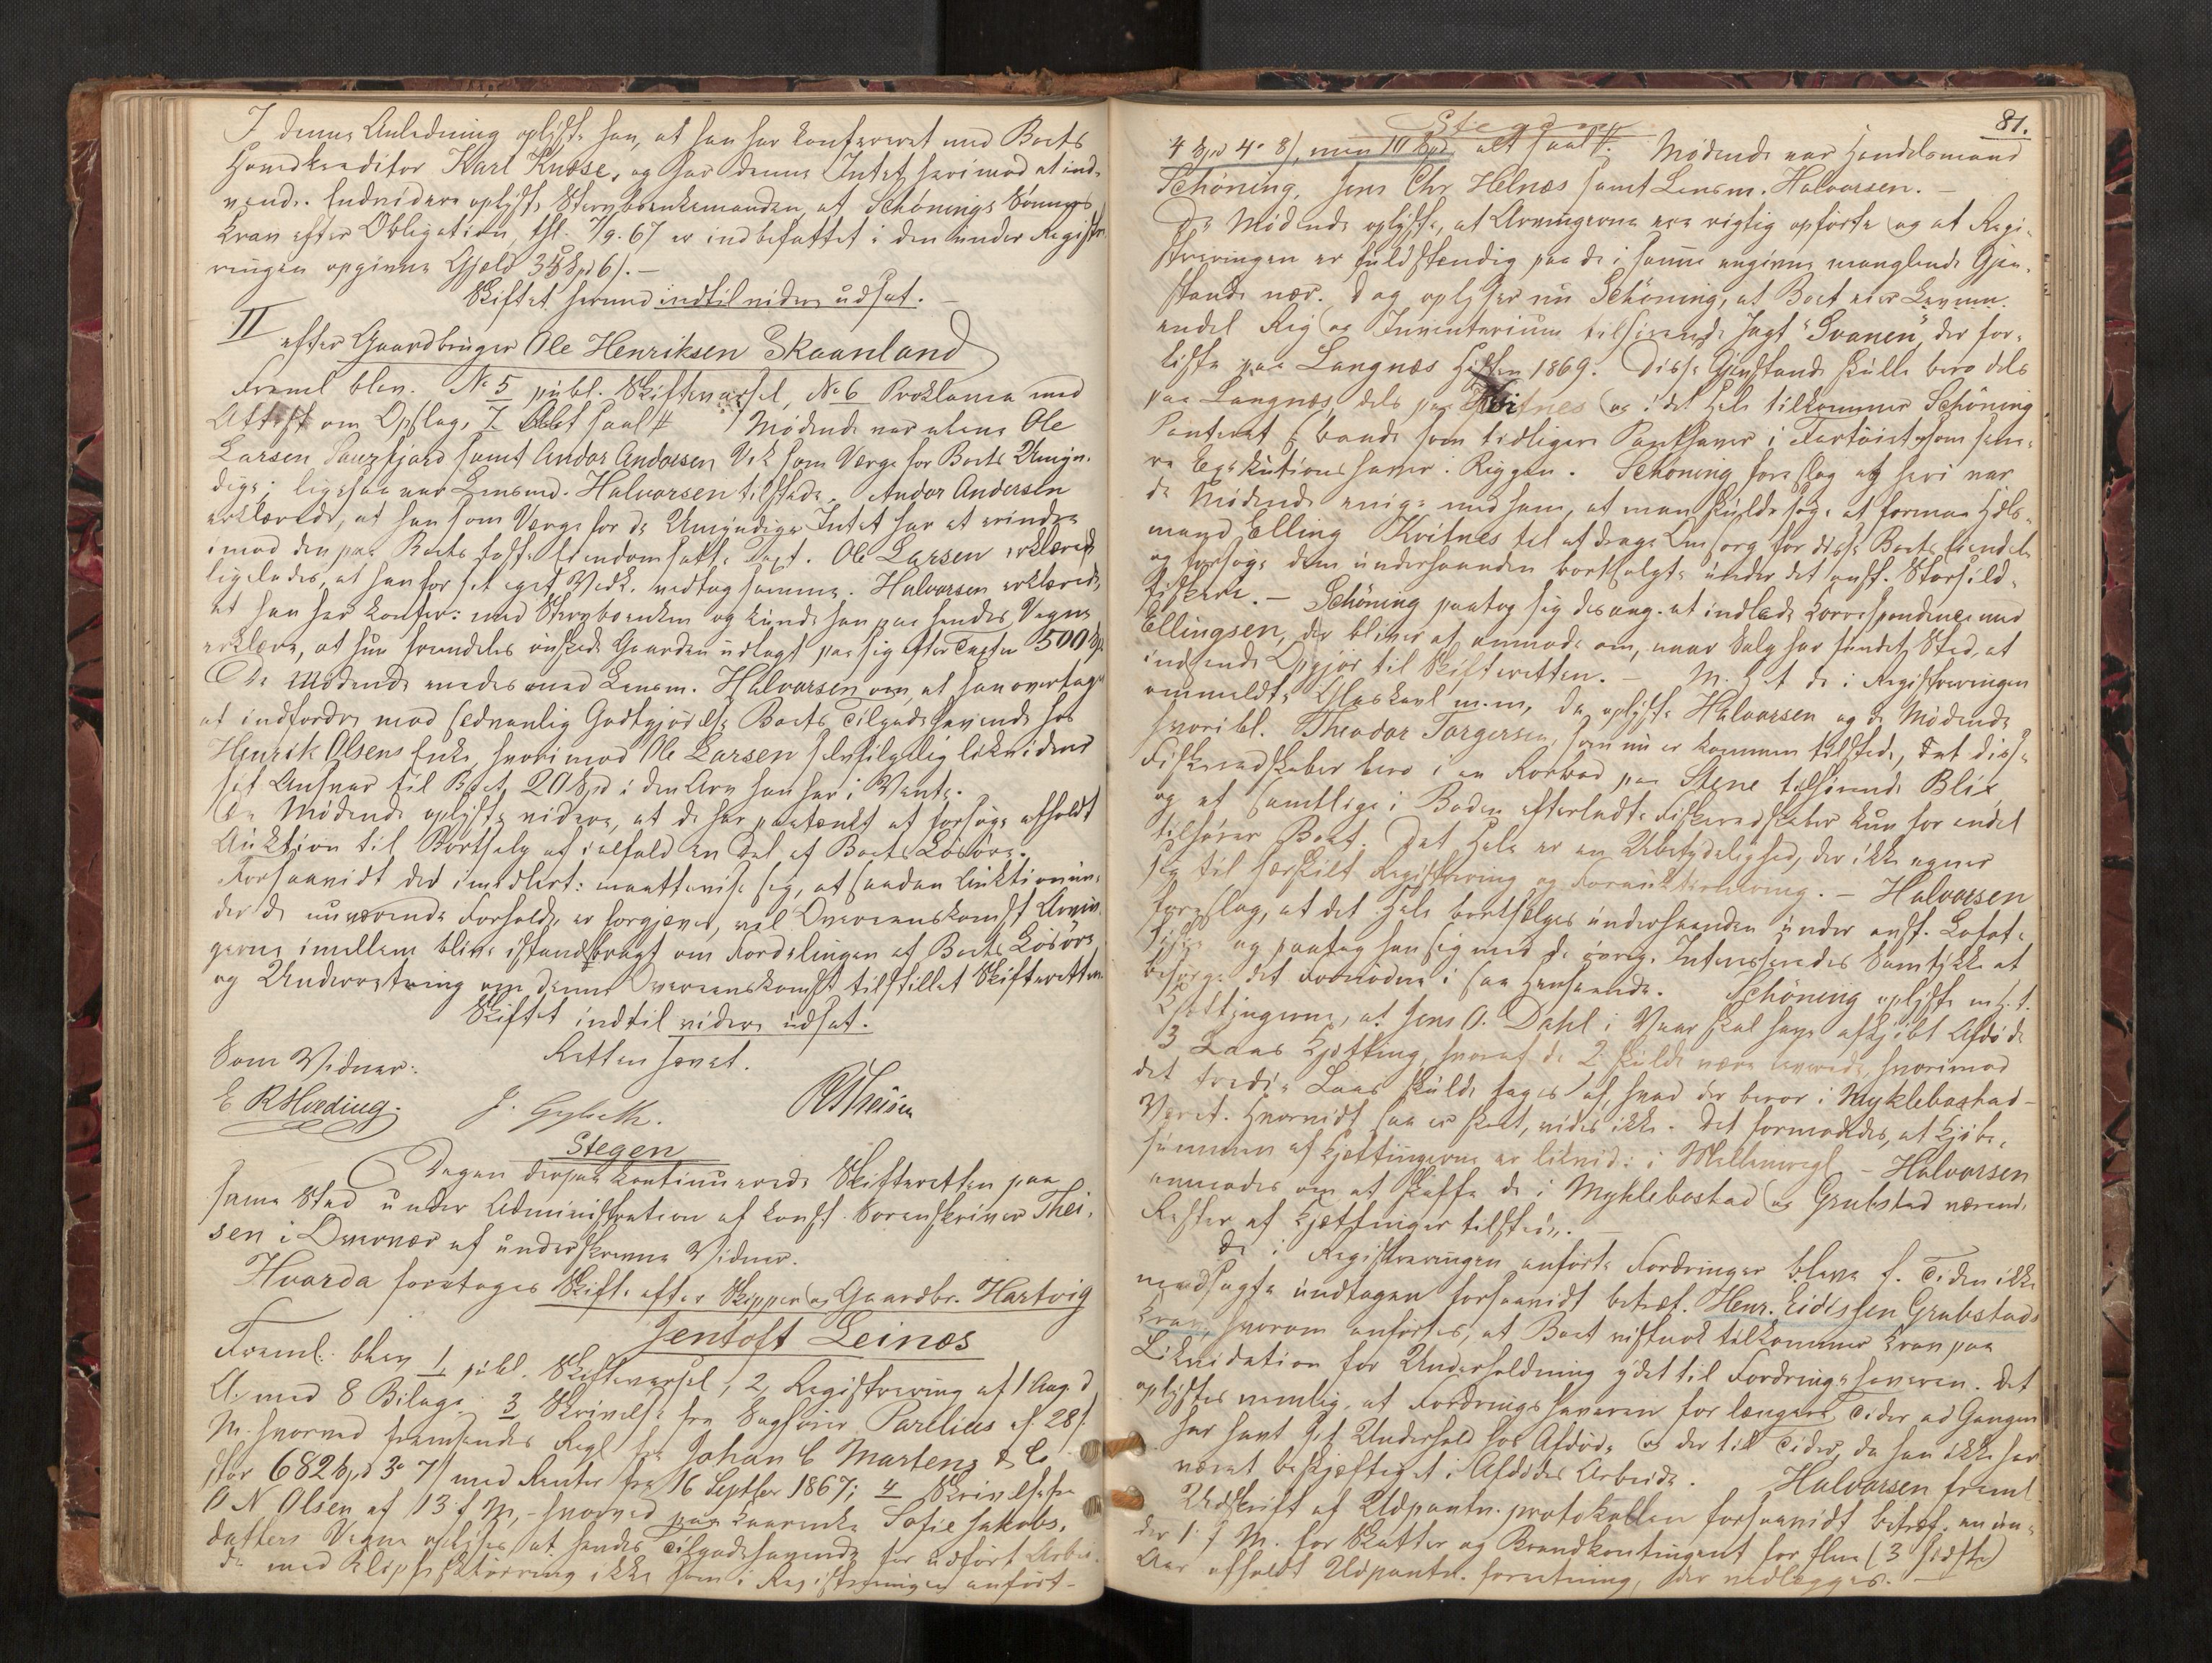 I denne Anledning oplyste han, at han har konfereret med Boets
Hovedkreditor Karl Kusse, og har denne Intet herimod at ind-
vende. Endvidere oplyste Stervboenkemanden at Schönings Sönners
Krav efter Obligation, thl. 7/9.67 er indbefattet i den under Registre-
ringen opgivne Gjeld 35 Spd 6 s. —
Skiftet herved indtil videre udsat. —
II
efter Gaardbruger Ole Henriksen Skaanland
Freml blev. No 5 publ. Skiftevarsel, No 6 Proklama med
Attest om Opslag, 7 Alt saal # Mødende var alene Ole
Larsen fjord samt Andor Andorsen Vik som Værge for Boets Umyn-
dige; ligesaa var Lensmd. Halvorsen tilstede. Andor Andersen
erklærede, at han som Værge for de Umyndige Intet har at erindre
imod den paa Boets faste Eiendom satte Taxt. Ole Larsen erklærede
ligeledes, at han for sit eget Vedk. vedtog samme. Halvorsen erklærede,
at han har konfer: med Stervboenken og kunde han paa hendes Vegne
erklære, at hun fremdeles ønskede Gaarden udlagt paa sig efter Taxten 500 Spd
De Mødende enedes med Lensm. Halvorsen om, at han overtager
at indfordre mod sedvanlig Godtgjørelse Boets Tilgodehavende hos
Henrik Olsens Enke, hvorimod Ole Larsen selvfølgelig likviderer
sit Ansvar til Boet 20 Spd i den Arv han har i Vente.
De Mødende oplyste videre, at de har paatænkt at forsøge afholdt
Auktion til Bortsalg af ialfald en Del af Boets Løsøre.
Forsaavidt det imidlert: maatte vise sig, at saadan Auktion un-
der de nuværende Forholde er forgjæves, vil Overenskomst Arvin-
gerne imellem blive istandbragt om Fordelingen af Boets Løsøre
og Underretning om denne Overenskomst tilstillet Skifteretten.
Skiftet indtil videre udsat.
Retten hævet.
Som Vidner:
E R Hveding. J. Gylseth. RTheisen
Stegen
Dagen derpaa kontinuerede Skifteretten paa
samme Sted under Administration af konst. Sorenskriver Thei-
sen i Overvær af underskrevne Vidner.
Hvorda foretoges Skifte efter Skipper og Gaardbr. Hartvig
Jentoft Leines
Freml: blev 1, publ. Skiftevarsel, 2, Registrering af 1 Aug. d
A. med 8 Bilage; 3 Skrivelse fra Sagfører Parelius af 28 f.
M. hvorved fremsendes Regl fra Johan C Martens & Co
stor 682 Spd 3 o 7 s med Renter fra 16 Septber 1867; 4 Skrivelse fra
O N Olsen af 13 f M, - hvorved paa Kaarenke Sofie Jakobs-
datters Vegne oplyses at hendes Tilgodehavende for udført Arbei-
de med Klipfisktørring ikke som i Registreringen anført -
Stegen
81.
4 Spd 4 o 8 s, men 10 Spd. alt saal #. Mødende var Handelsmand
Schöning, Jens Chr Helnæs samt Lensm. Halvorsen. —
De Mødende oplyste, at Arvingerne ere rigtig opførte og at Regi-
streringen er fuldstændig paa de i samme angivne manglende Gjen-
stande nær. Dog oplyser nu Schöning, at Boet eier
endel Rig og Inventarium tilhørende Jagt "Svanen", der for-
liste paa Langnæs Høsten 1869. Disse Gjenstande skulle bero dels
paa Langnæs, dels paa Kvitnes og i det Hele tilkommer Schöning
Panteret baade som tidligere Panthaver i Fartøiet, som sene-
re Exekutionshaver i Riggen. Schöning foreslog og heri var
de Mødende enige med ham, at man skulde søge at formaa Hdls-
mand Elling Kvitnes til at drage Omsorg for disse Boets Eiendele
og forsøge dem underhaanden bortsolgte under det anst. Storsild-
fiskeri. — Schöning paatog sig desang. at indlede Korrespondence med
Ellingsen, der bliver at anmode om, naar Salg har fundet Sted, at
indsende Opgjør til Skifteretten. — M. H. t. de i Registreringen
ommeldte Glaskavl m.m, da oplyste Halvorsen og de Mødende
hvoribl. Theodor Torgersen, som nu er kommen tilstede, at disse
Fiskeredskaber bero i en Rorbod paa Stene tilhørende Blix,
og at samtlige i Boden efterladte Fiskeredskaber kun for endel
tilhører Boet. Det Hele er en Ubetydelighed, der ikke egner
sig til særskilt Registrering og Forauktionering. — Halvorsen
foreslog, at det Hele bortsælges underhaanden under anst. Lofot-
fiske og paatog han sig med de øvrige Interesseredes Samtykke at
besørge det Fornødne i saa Henseende. Schöning oplyste m. H. t.
Kjættingerne, at Jens A. Dahl i Vaar skal have afkjøbt Afdøde
3 Laas Kjetting, hvoraf de 2 skulde være leverede, hvorimod
det tredie Laas skulde tages af hvad der beror i Myklebostad-
Været. Hvorvidt saa er skeet, vides ikke. Det formodedes, at Kjøbe-
summen af Kjettingerne er likvid: i Mellemregl. — Halvorsen
anmodes om at skaffe de i Myklebostad og Grubstad værende
Rester af Kjættinger tilstede. —
De i Registreringen anførte Fordringer bleve f. Tiden ikke
modsagte undtagen forsaavidt betræf. Henr. Eidissen Grubstads
Krav, hvorom anførtes, at Boet vistnok tilkommer Krav paa
Likvidation for Underholdning ydet til Fordringshaveren. Det
oplystes nemlig, at Fordringshaveren for længere Tider ad Gangen
har havt sit Underhold hos Afdøde og der til Tider, da han ikke har
været beskjæftiget i Afdødes Arbeide. Halvorsen freml
Udskrift af Udpantn. protokollen forsaavidt betræf. en un-
der 1 f M. for Skatter og Brandkontingent for flere (3 sidste)
Aar afholdt Udpantn. forretning, der vedlægges. —